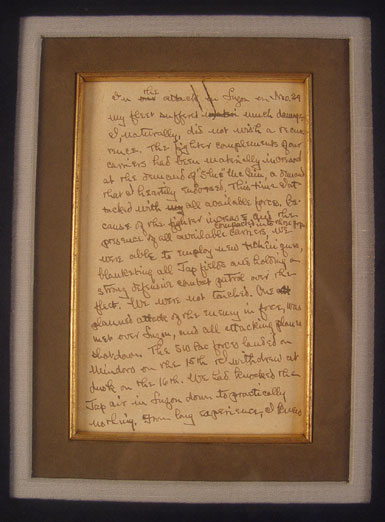 In the attack on Luzon on Nov. 29
my fleet suffered much damage.
I, naturally, did not wish a recur-
rence. The fighter complements of our
carriers had been materially increased
at the demand of a demand
that I heartily endorsed. This time I at-
tacked with all available force. Be-
cause of the fighter increase and the
compact
presence of all available carriers, we
were able to employ new techniques,
blanketing all Jap fields and holding a
strong defensive combat patrol over the
fleet. We were not touched. One
planned attack of the enemy in force, was
met over Luzon, and all attacking planes
shot down. The SoPac forces landed on
Mindoro on the 15th I withdrew at
dusk on the 16th. We had knocked the
Jap air in Luzon down to practically
nothing. From long experience, I knew